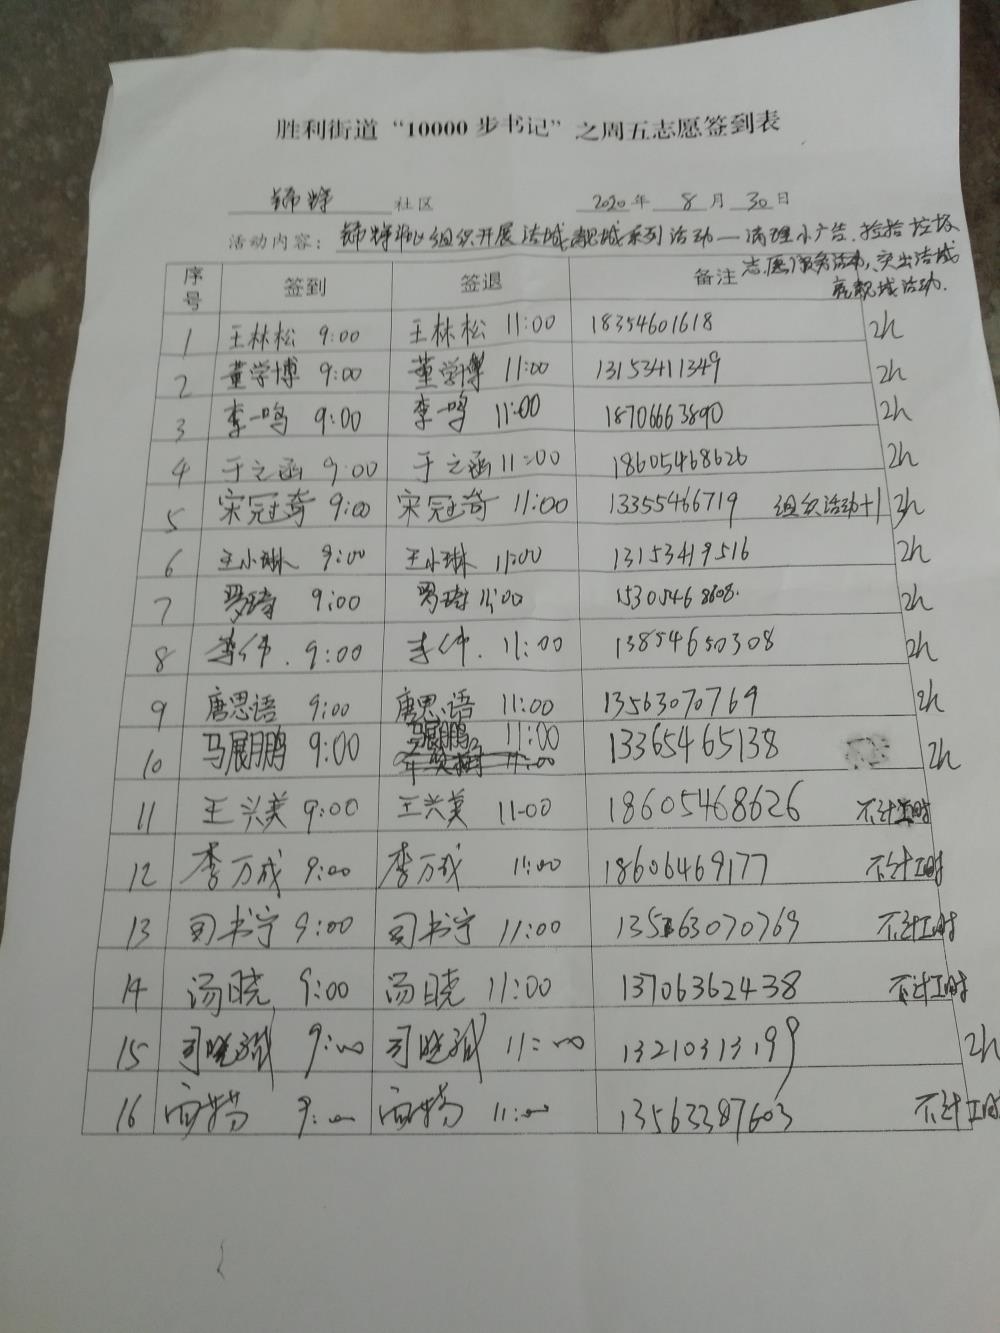 胜利街道“10000步书记”之周五志愿签到表
锦辉 社区 2020年 8月 30日
活动内容：锦辉社区组织开展洁城靓城系列活动—清理小广告、捡拾垃圾
志愿服务活动，突出洁城
靓城活动.
序号 签到 签退 备注
1 王林松 9:00 王林松 11:00 18354601618 2h
2 董学博 9:00 董学博 11:00 13153411349 2h
3 李一鸣 9:00 李鸣 11:00 18706663890 2h
4 于之函 9:00 于之函 11:00 18605468626 2h
5 宋冠奇 9:00 宋冠奇 11:00 13355466719 组织活动+1 3h
6 王小琳 9:00 王小琳 11:00 13153419516 2h
7 罗琦 9:00 罗琦 11:00 15305468608. 2h
8 李伟. 9:00 李伟. 11:00 13854650308 2h
9 唐思语 9:00 唐思语 11:00 13563070769 2h
10 马展鹏 9:00 马展鹏 11:00 13365465138 2h
11 王兴美 9:00 王兴美 11-00 18605468626 不计工时
12 李万成 9:00 李万成 11:00 18606469177 不计工时
13 司书宁 9:00 司书宁 11:00 13563070769 不计工时
14 汤晓 9:00 汤晓 11:00 13706362438 不计工时
15 司晓斌 9:00 司晓斌 11:00 13210313199 2h
16 9:00 11:00 13563387603 不计工时